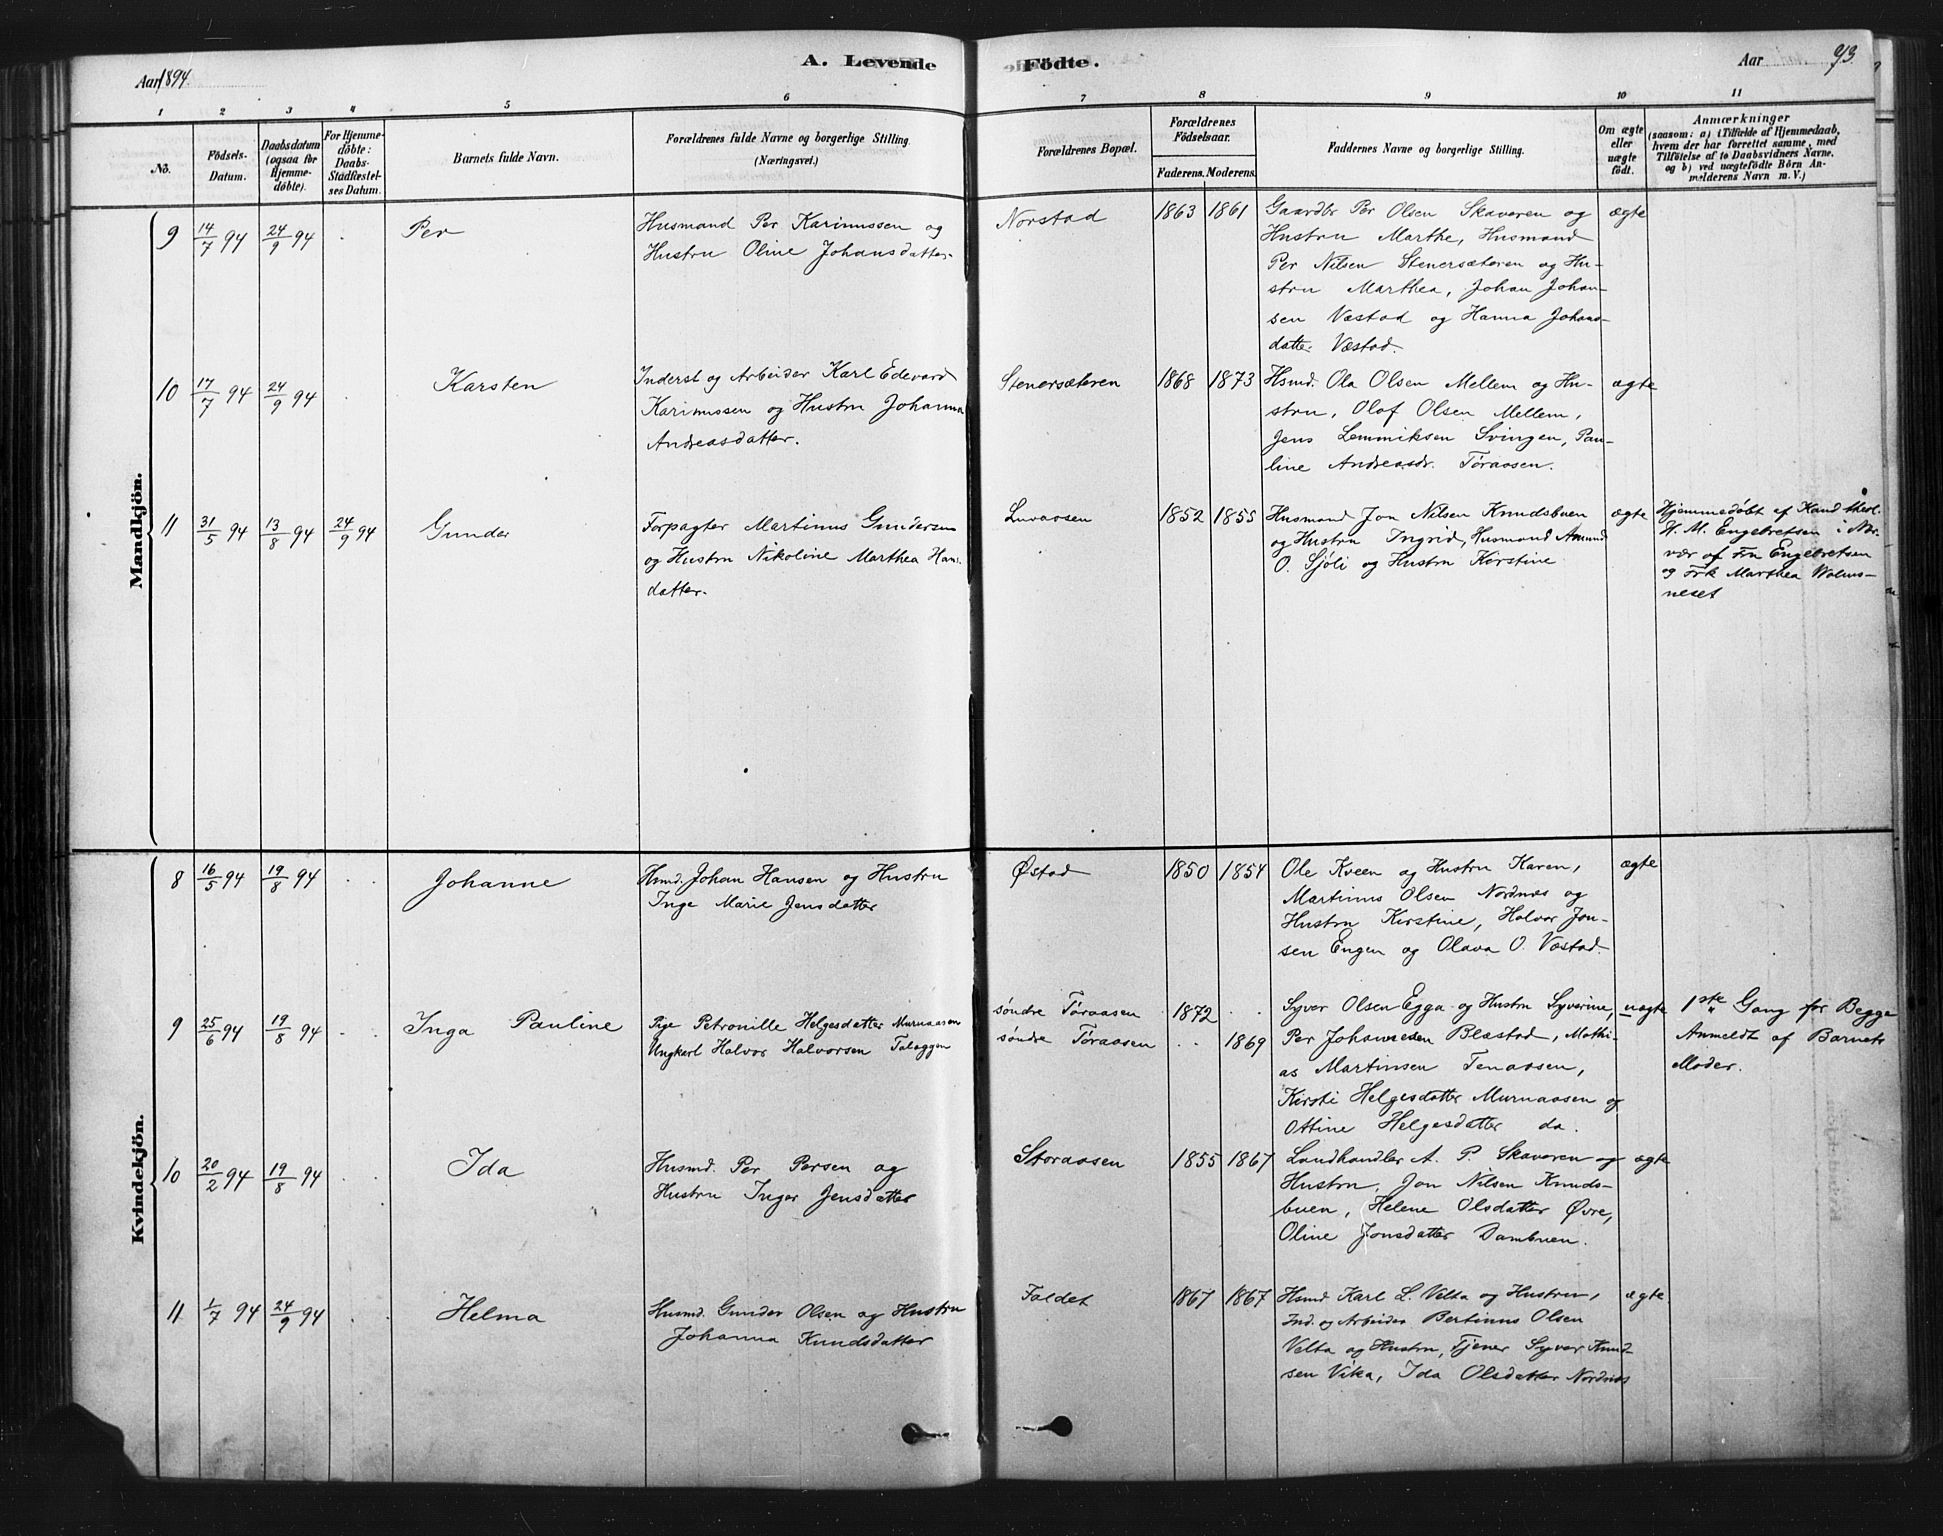 Aar 1894.
A. Levende Födte.
Aar
93.
1 2 3 4 5 6 7 8 9 10 11
No.
Födsels-Datum.
Daabsdatum (ogsaa for Hjemme-döbte).
For Hjemme-döbte: Daabs-Stadfæstel-ses Datum.
Barnets fulde Navn.
Forældrenes fulde Navne og borgerlige Stilling (Næringsvei.)
Forældrenes Bopæl.
Forældrenes Födselsaar.
Faderens. Moderens.
Faddernes Navne og borgerlige Stilling.
Om ægte eller uægte födt.
Anmærkninger
(saasom: a) i Tilfælde af Hjemmedaab,
hvem der har forrettet samme, med
Tilföielse af to Daabsvidners Navne,
og b) ved uægtefödte Börn An-
melderens Navn m. V.)
Mandkjön.
9 14/7 94 24/9 94 . Per
Husmand Per Karinussen og
Hustru Oline Johansdatter.
Norstad 1863 1861
Gaardbr Per Olsen Skaveren og
Hustru Marthe, Husmand
Per Nilsen Stenersæteren og Hu-
stru Marthea, Johan Johan-
sen Væstad og Hanna Johans-
datter Væstad.
ægte
10 17/7 94 24/9 94 . Karsten
Inderst og Arbeider Karl Edevard
Karinussen og Hustru Johanna
Andreasdatter.
Stenersæteren 1868 1873
Hsmd. Ola Olsen Mellem og Hu-
stru, Olof Olsen Mellem,
Jens Lemmiksen Svingen, Pau-
line Andreasdr. Tøraasen.
ægte
11 31/5 94 13/8 94 24/9 94 Gunder
Forpagter Martinus Gundersen
og Hustru Nikoline Marthea Hans-
datter.
Luvaasen 1852 1855
Husmand Jon Nilsen Knudsbuen
og Hustru Ingrid, Husmand Amund
O. Sjøli og Hustru Kirstine
ægte
Hjemmedøbt af Kand. theol.
H. M. Engebretsen i Nær-
vær af Fru Engebretsen
og Frk Marthea
Kvindekjön.
8 16/5 94 19/8 94 . . Johanne
Hsmd. Johan Hansen og Hustru
Inge Marie Jensdatter
Østad 1850 1854
Ole Kveen og Hustru Karen,
Martinus Olsen Nordnæs og
Hustru Kirstine, Halvor Jon-
sen Engen og Olava O. Væstad.
ægte
9 25/6 94 19/8 94 . . Inga Pauline
Pige Petronille Helgesdatter Murnaasen
Ungkarl Halvor Halvorsen
søndre Tøraasen 1872 .
søndre Tøraasen . . 1869
Syver Olsen Egga og Hustru Syverine,
Per Johannesen Blæstad, Mathi-
as Martinsen Tenaasen,
Kirsti Helgesdatter Murnaasen og
Ottine Helgesdatter do.
uægte
1ste Gang for Begge
Anmeldt af Barnets
Moder.
10 20/2 94 19/8 94 Ida
Husmd. Per Persen og
Hustru Inger Jensdatter
Storaasen 1855 1867
Landhandler A. P. Skaveren og
Hustru, Jon Nilsen Knuds-
buen, Helene Olsdatter Øvre,
Oline Jonsdatter Dambuen.
ægte
11 1/7 94 24/9 94 Helma
Husmd. Gunder Olsen og Hustru
Johanna Knudsdatter
Faldet 1867 1867
Hsmd Karl L. Velta og Hustru,
Ind. og Arbeider Bertinus Olsen
Velta og Hustru, Tjener Syver Knud-
sen Vika, Ida Olsdatter Nordnæs
ægte